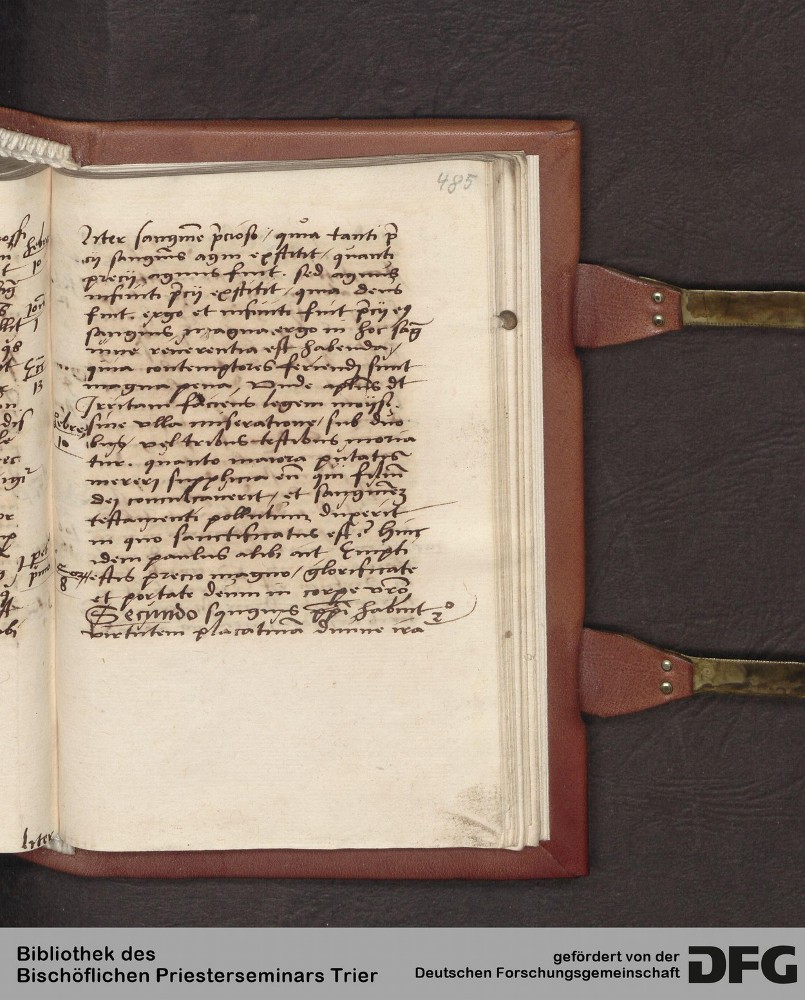 485
liter sanguine p̄cioso / quia tanti p̄
cij sanguis agni exstitit / quanti
precij agnus fuit. sed agnus
infiniti p̄cij exstitit / quia deus
fuit. ergo et infiniti fuit p̄cij eỹ
sanguis, magna ergo in hoc sag̃
uine reuerentia est habenda /
quia contemptores feriendj sunt
magna pena, Vnde apl̃us dt
Irritam faciens legem moijsi.
sine vlla miseratione / sub duo
bus / vel tribus testibus moria
tur. quanto maiora putatis
mererj supplicia eũ qui filiũ
dej conculcauerit / et sanguinẽ
testamenti pollutum duxerit
in quo sanctificatus est Hinc
idem paulus alibi ait Empti
estis precio magno / glorificate
et portate deum in corpe vr̃o
Secundo sanguis xp̄i habuit
virtutem placatiuã diuine ira
hebre
10
8
2º
hebre
10
1
13
1 pet
liter
Bibliothek des
Bischöflichen Priesterseminars Trier
gefördert von der
Deutschen Forschungsgemeinschaft
DFG